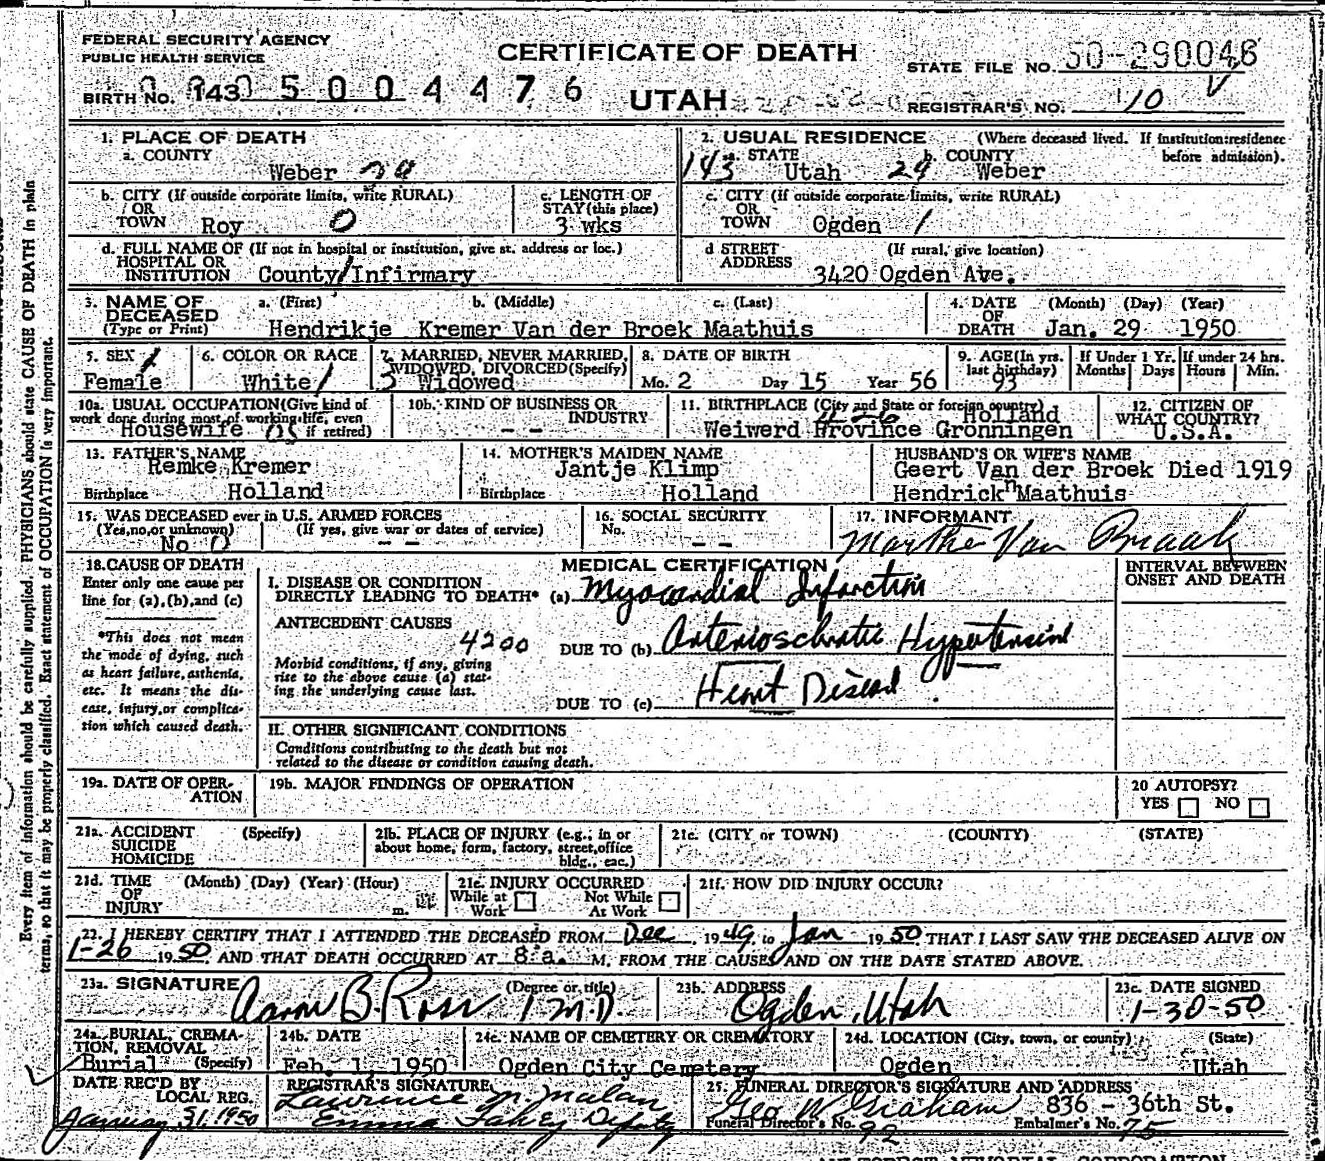 FEDERAL SECURITY AGENCY
PUBLIC HEALTH SERVICE
CERTIFICATE OF DEATH
STATE FILE NO. 50-290046
BIRTH No. 143 5004476
UTAH
REGISTRAR'S NO. 110
1. PLACE OF DEATH
a. COUNTY
Weber 29
2. USUAL RESIDENCE (Where deceased lived. If institution:residence before admission).
143 a. STATE Utah 29 b. COUNTY Weber
b. CITY (If outside corporate limits, write RURAL)
OR
TOWN Roy 0
c. LENGTH OF
STAY (this place)
3 wks
c. CITY (If outside corporate limits, write RURAL)
OR
TOWN Ogden 1
d. FULL NAME OF (If not in hospital or institution, give st. address or loc.)
HOSPITAL OR
INSTITUTION County Infirmary
d STREET (If rural, give location)
ADDRESS
3420 Ogden Ave.
3. NAME OF
DECEASED
(Type or Print)
a. (First) b. (Middle) c. (Last)
Hendrikje Kremer Van der Broek Maathuis
4. DATE (Month) (Day) (Year)
OF
DEATH Jan. 29 1950
5. SEX 1
Female
6. COLOR OR RACE
White 1
7. MARRIED, NEVER MARRIED,
WIDOWED, DIVORCED (Specify)
3 Widowed
8. DATE OF BIRTH
Mo. 2 Day 15 Year 56
9. AGE (In yrs.
last birthday)
93
If Under 1 Yr.
Months Days
If under 24 hrs.
Hours Min.
10a. USUAL OCCUPATION (Give kind of
work done during most of working life, even
if retired)
Housewife
10b. KIND OF BUSINESS OR
INDUSTRY
- -
11. BIRTHPLACE (City and State or foreign country)
Holland
Weiwerd Province Gronningen
12. CITIZEN OF
WHAT COUNTRY?
U.S.A.
13. FATHER'S NAME
Remke Kremer
Birthplace Holland
14. MOTHER'S MAIDEN NAME
Jantje Klimp
Birthplace Holland
HUSBAND'S OR WIFE'S NAME
Geert Van der Broek Died 1919
Hendrick Maathuis
15. WAS DECEASED ever in U.S. ARMED FORCES
(Yes,no,or unknown) (If yes, give war or dates of service)
No 0 - -
16. SOCIAL SECURITY
No. - -
17. INFORMANT
Van
18. CAUSE OF DEATH
Enter only one cause per
line for (a),(b),and (c)
*This does not mean
the mode of dying, such
as heart failure, asthenia,
etc. It means the dis-
ease, injury, or complica-
tion which caused death.
MEDICAL CERTIFICATION
INTERVAL BETWEEN
ONSET AND DEATH
I. DISEASE OR CONDITION
DIRECTLY LEADING TO DEATH* (a) Myocardial Infarction
ANTECEDENT CAUSES
4200
Morbid conditions, if any, giving
rise to the above cause (a) stat-
ing the underlying cause last.
DUE TO (b) Arteriosclerotic Hypertensive
DUE TO (c) Heart Disease
II. OTHER SIGNIFICANT CONDITIONS
Conditions contributing to the death but not
related to the disease or condition causing death.
19a. DATE OF OPER-
ATION
19b. MAJOR FINDINGS OF OPERATION
20 AUTOPSY?
YES NO
21a. ACCIDENT (Specify)
SUICIDE
HOMICIDE
21b. PLACE OF INJURY (e.g., in or
about home, form, factory, street, office
bldg., eac.)
21c. (CITY or TOWN) (COUNTY) (STATE)
21d. TIME (Month) (Day) (Year) (Hour)
OF
INJURY m.
21e. INJURY OCCURRED
While at Work Not While At Work
21f. HOW DID INJURY OCCUR?
22. I HEREBY CERTIFY THAT I ATTENDED THE DECEASED FROM Dec, 1949 to Jan 1950, THAT I LAST SAW THE DECEASED ALIVE ON
1-26 1950, AND THAT DEATH OCCURRED AT 8 a. M. FROM THE CAUSES AND ON THE DATE STATED ABOVE.
23a. SIGNATURE (Degree or title)
Aaron B. Ross M.D.
23b. ADDRESS
Ogden, Utah
23c. DATE SIGNED
1-30-50
24a. BURIAL, CREMA-
TION, REMOVAL
Burial (Specify)
24b. DATE
Feb. 1, 1950
24c. NAME OF CEMETERY OR CREMATORY
Ogden City Cemetery
24d. LOCATION (City, town, or county) (State)
Ogden Utah
DATE REC'D BY
LOCAL REG.
January 31 1950
REGISTRAR'S SIGNATURE
Lawrence M. Malan
Emma Fahey Deputy
25. FUNERAL DIRECTOR'S SIGNATURE AND ADDRESS
Geo W Graham 836 - 36th St.
Funeral Director's No. 92 Embalmer's No. 75
Every item of information should be carefully supplied. PHYSICIANS should state CAUSE OF DEATH in plain
terms, so that it may be properly classified. Exact statement of OCCUPATION is very important.